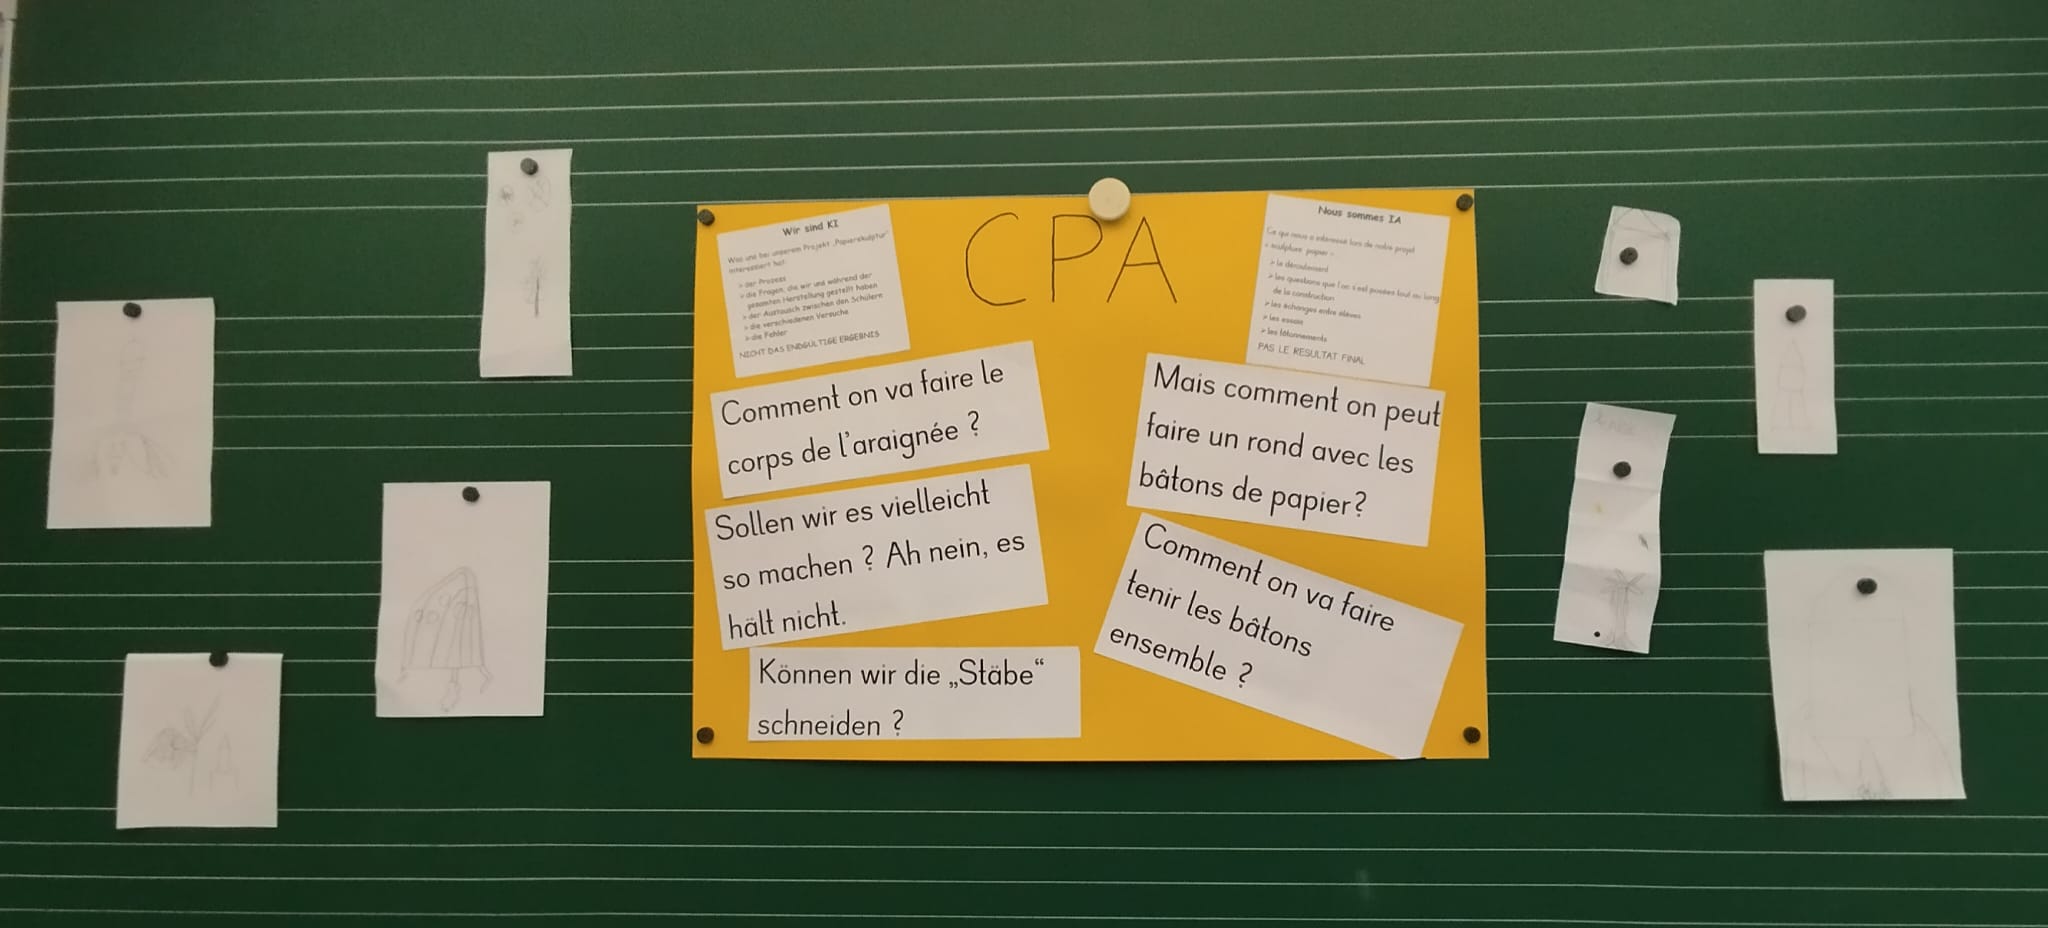 CPA
Wir sind KI
Was uns bei unserem Projekt „Papierskulptur"
interessiert hat:
> der Prozess
> die Fragen, die wir uns während der
gesamten Herstellung gestellt haben
> der Austausch zwischen den Schülern
> die verschiedenen Versuche
> die Fehler
NICHT DAS ENDGÜLTIGE ERGEBNIS
Comment on va faire le
corps de l'araignée ?
Sollen wir es vielleicht
so machen ? Ah nein, es
hält nicht.
Können wir die „Stäbe"
schneiden ?
Nous sommes IA
Ce qui nous a intéressé lors de notre projet
« sculpture papier »
> le déroulement
> les questions que l'on s'est posées tout au long
de la construction
> les échanges entre élèves
> les essais
> les tâtonnements
PAS LE RESULTAT FINAL
Mais comment on peut
faire un rond avec les
bâtons de papier?
Comment on va faire
tenir les bâtons
ensemble ?